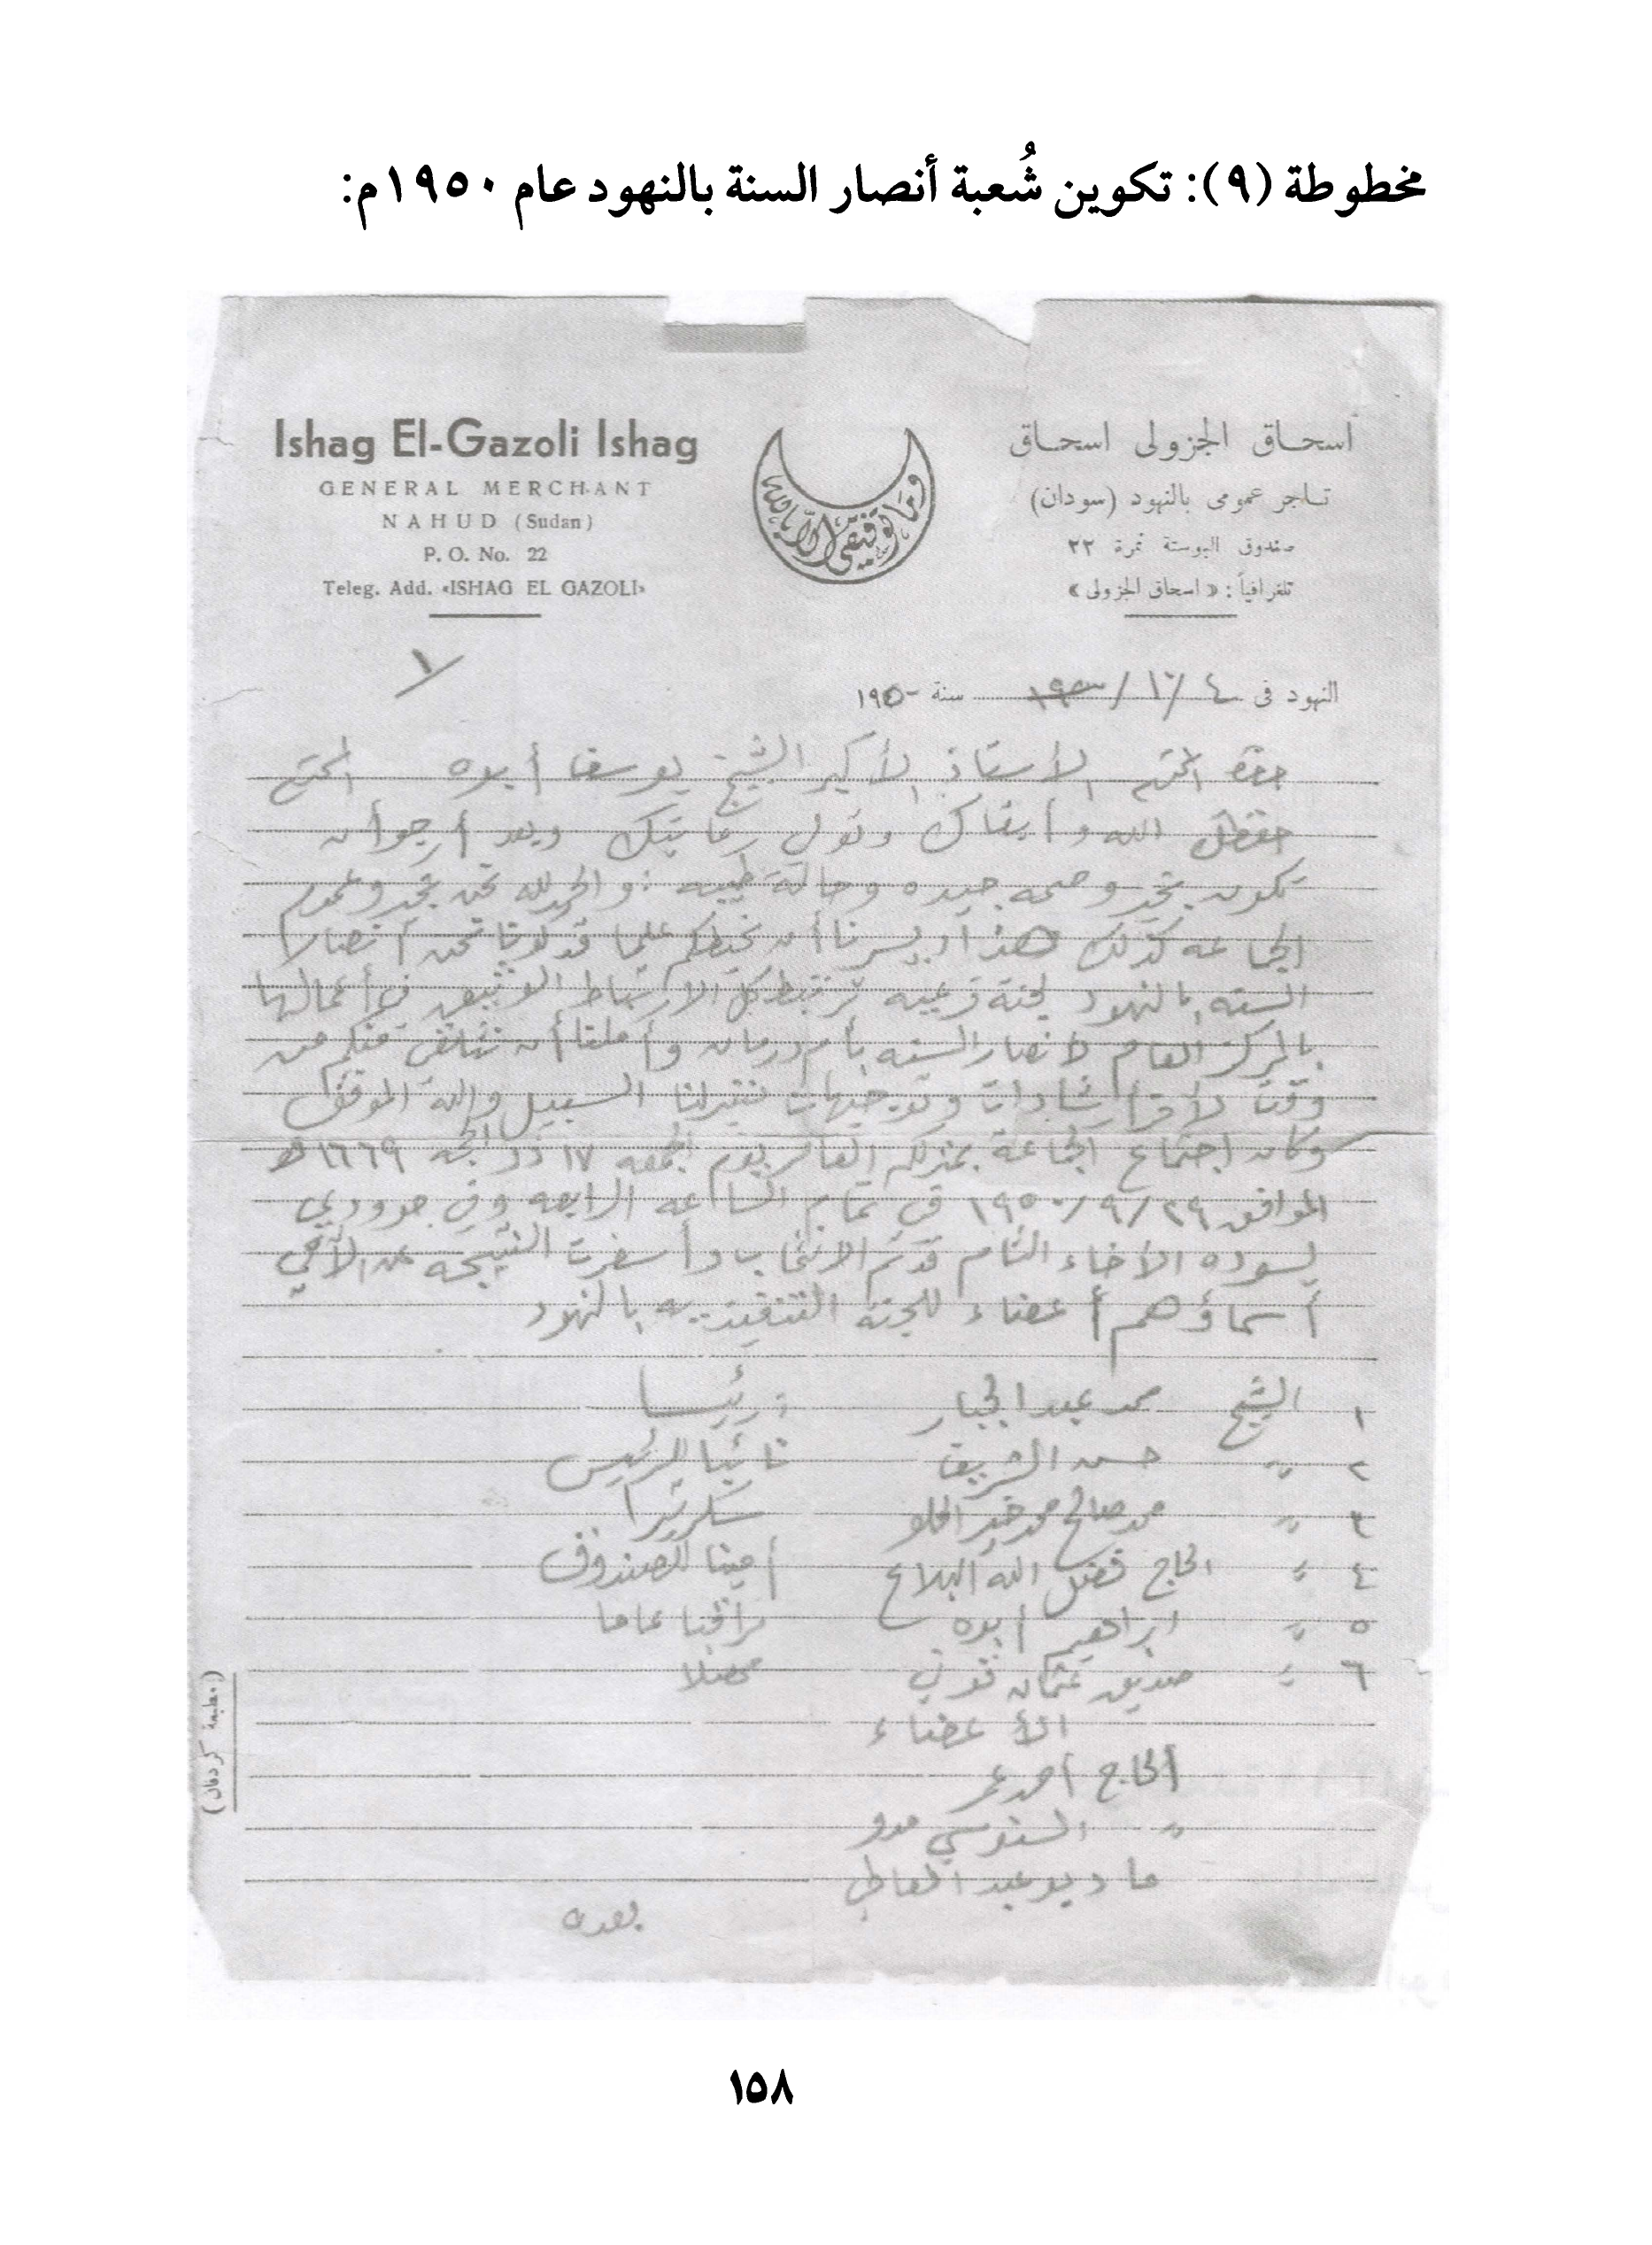 مخطوطة (٩): تكوين شُعبة أنصار السنة بالنهود عام ١٩٥٠م:
Ishag El-Gazoli Ishag
GENERAL MERCHANT
NAHUD (Sudan)
P. O. No. 22
Teleg. Add. «ISHAG EL GAZOLI»
وما توفيقي إلا بالله
اسحاق الجزولى اسحاق
تاجر عمومى بالنهود (سودان)
صندوق البوستة نمرة ٢٢
تلغرافياً: «اسحاق الجزولى»
١/
النهود فى ٤ / ١٠ / سنة ١٩٥٠
حضرة المحترم الأستاذ الأكبر الشيخ يوسف أبوه المحترم
حفظك الله وأبقاك وتولى رعايتك وبعد أرجو أن
تكون بخير وصحه جيده وحالة طيبه : والحمد لله نحن بخير وعموم
الجماعه كذلك هذا ويسرنا أن نحيطكم علما قد كونا نحن أنصار
السنه بالنهود لجنة فرعيه ترتبط كل الارتباط الوثيق في أعمالها
بالمركز العام لأنصار السنه بأم درمان وأملنا أن نتلقى منكم من
وقت لآخر إرشادات وتوجيهات لتنير لنا السبيل والله الموفق
وكان اجتماع الجماعة بمنزلكم العامر يوم الجمعه ١٧ ذو الحجه ١٣٦٩ هـ
الموافق ٢٩/٩/١٩٥٠ في تمام الساعه الرابعه وفي جو ودي
يسوده الأخاء التام قد تم الانتخاب وأسفرت النتيجه عن الآتي
أسماؤهم أعضاء للجنة التنفيذيه بالنهود
١ الشيخ محمد عبد الجبار : رئيسا
٢ " حسن الشريف نائبا للرئيس
٣ " محمد صالح محمد خير الحلو سكرتيرا
٤ " الحاج فضل الله البلاع أمينا للصندوق
٥ " ابراهيم أبوه مراقبا عاما
٦ " صديق عثمان محصلا
الأعضاء
الحاج أحمد عمر
" السنوسي
عبد العاطي
بعده
(مطبعة كردفان)
١٥٨